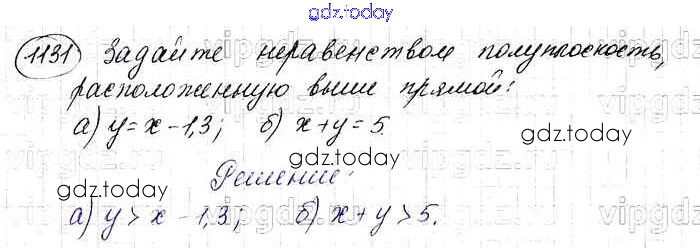 gdz.today
1131 Задайте неравенством полуплоскость,
расположенную выше прямой:
а) y = x - 1,3; б) x + y = 5.
gdz.today
gdz.today
Решение:
gdz.today
а) y > x - 1,3; б) x + y > 5.